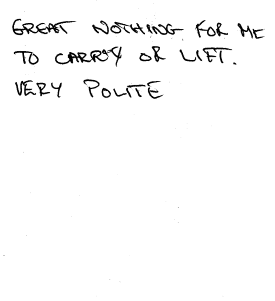 GREAT NOTHING FOR ME
TO CARRY OR LIFT.
VERY POLITE